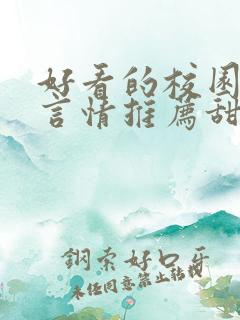 好看的校园
言情推荐甜
钢索好口牙
未经同意禁止转载